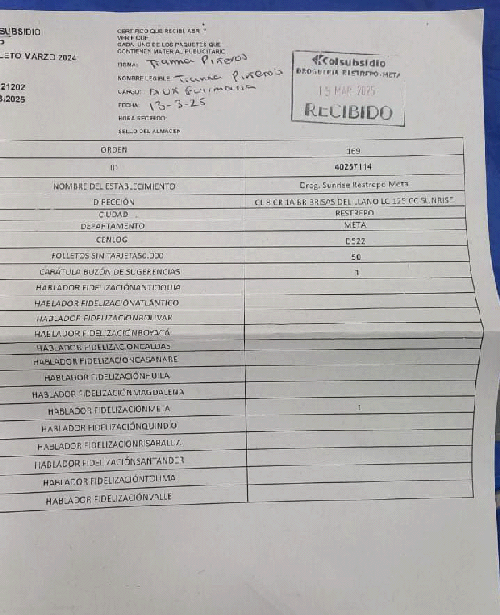 SUBSIDIO
LETO MARZO 2024
21202
CERTIFICO QUE RECIBI, ABRI Y
VERIFIQUE
CADA UNO DE LOS PAQUETES QUE
CONTIENES MATERIAL PUBLICITARIO
FIRMA:
NOMBRE LEGIBLE:
CARGO:
FECHA: 13-3-25
HORA RECIBIDO
SELLO DEL ALMACEN
Colsubsidio
DROGUERIA RESTREPO-META
13 MAR 2025
RECIBIDO
ORDEN 169
ID
NOMBRE DEL ESTABLECIMIENTO Drog. Sunrise Restrepo Meta
DIRECCIÓN
CIUDAD RESTREPO
DEPARTAMENTO META
CENLOG
FOLLETOS SIN TARJETAS 50
CARÁTULA BUZÓN DE SUGERENCIAS 1
HABLADOR FIDELIZACIÓN ANTIOQUIA
HABLADOR FIDELIZACIÓN ATLÁNTICO
HABLADOR FIDELIZACIÓN BOLIVAR
HABLADOR FIDELIZACIÓN BOYACÁ
HABLADOR FIDELIZACIÓN CALDAS
HABLADOR FIDELIZACIÓN CASANARE
HABLADOR FIDELIZACIÓN HUILA
HABLADOR FIDELIZACIÓN MAGDALENA
HABLADOR FIDELIZACIÓN META 1
HABLADOR FIDELIZACIÓN QUINDÍO
HABLADOR FIDELIZACIÓN RISARALDA
HABLADOR FIDELIZACIÓN SANTANDER
HABLADOR FIDELIZACIÓN TOLIMA
HABLADOR FIDELIZACIÓN VALLE